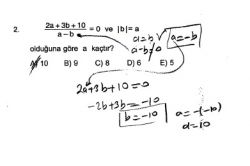 2. 2a+3b+10 / a-b = 0 ve |b|=a
olduğuna göre a kaçtır?
A) 10 B) 9 C) 8 D) 6 E) 5
a=b a=-b
a-b=0
2a+3b+10=0
-2b+3b=-10
b=-10
a=-(-10)
a=10